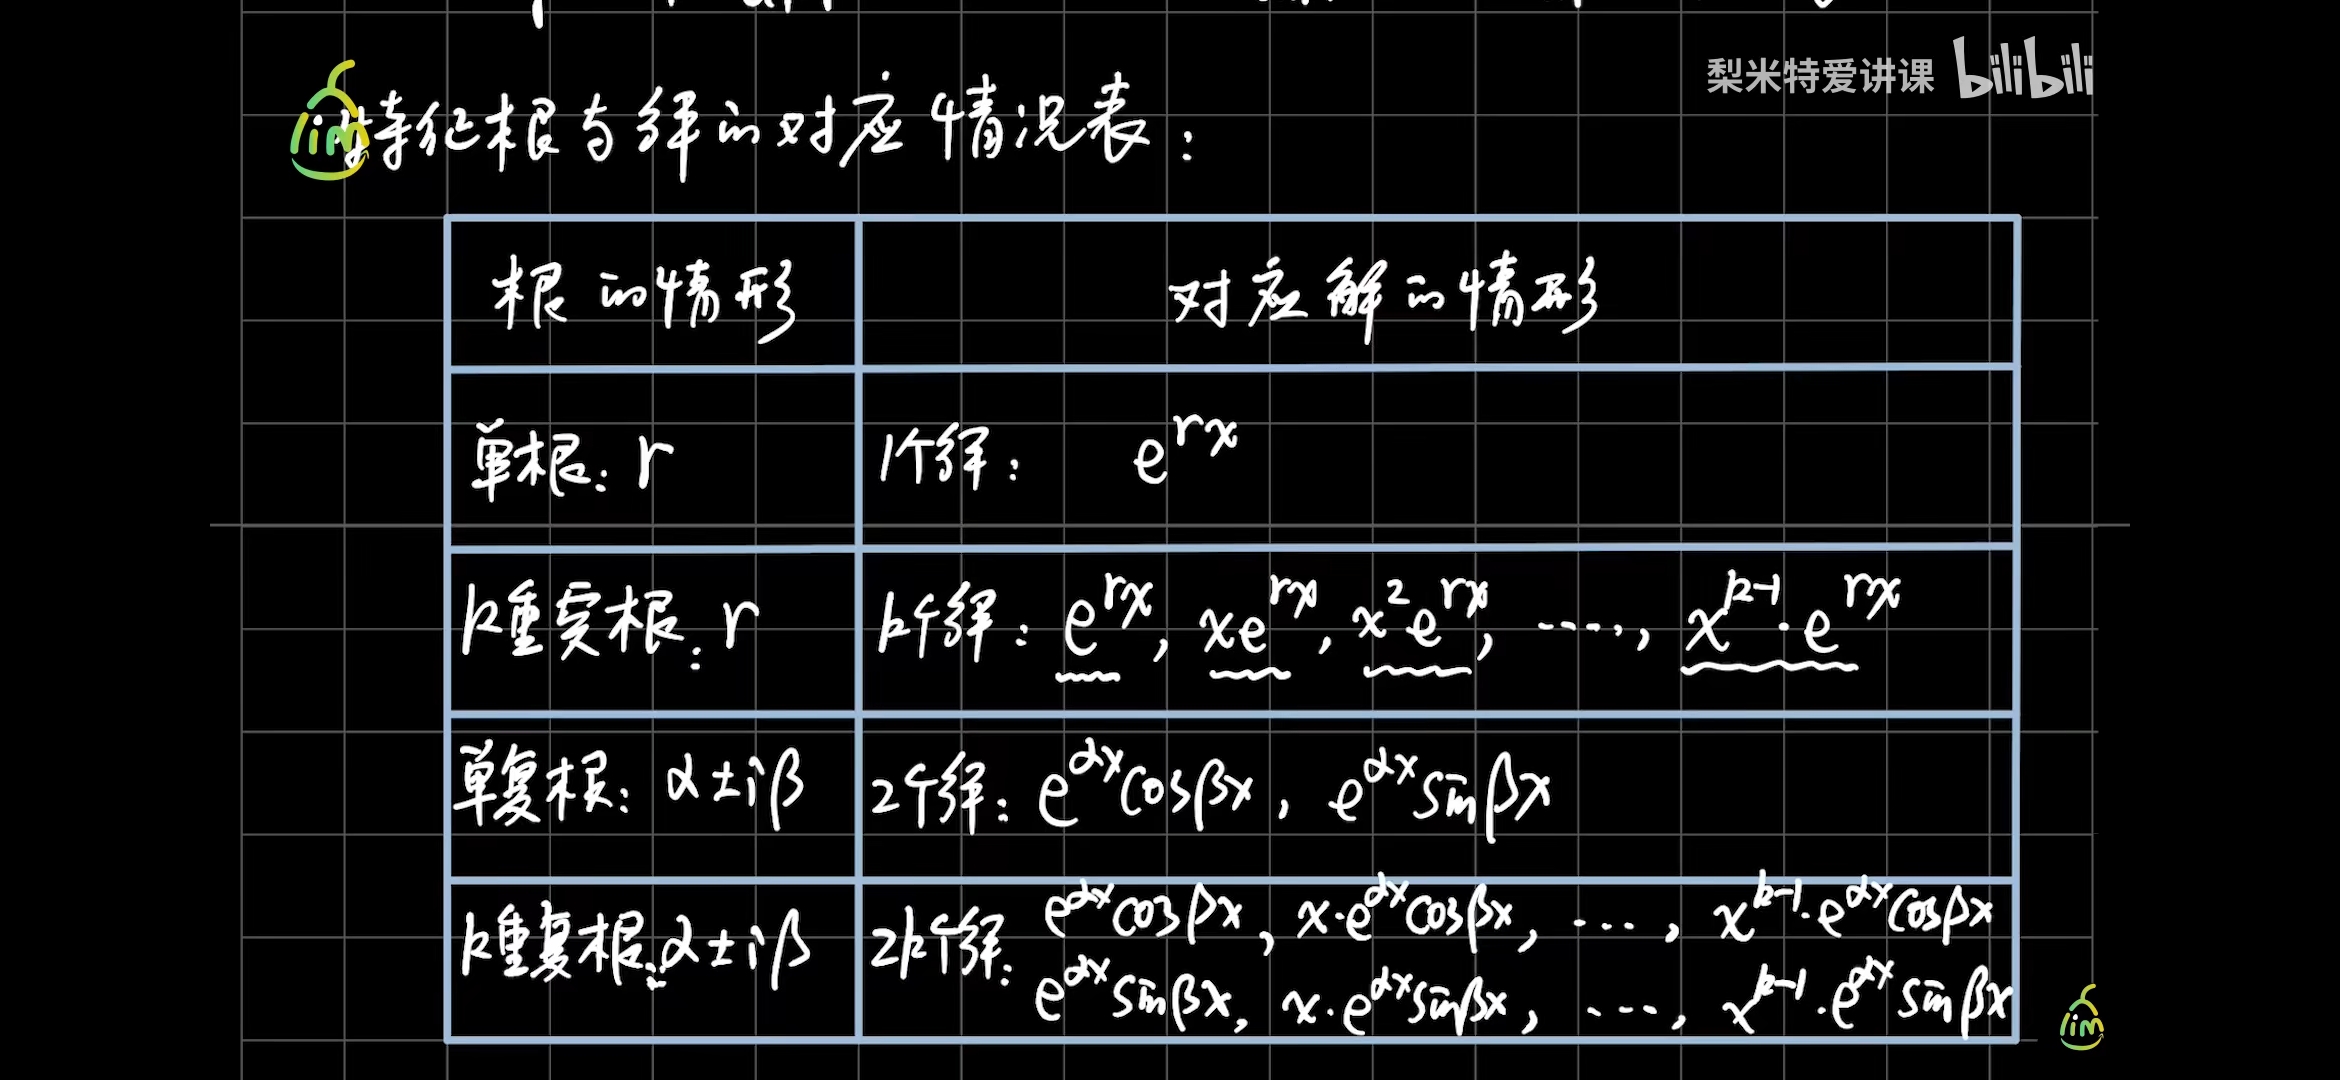 特征根与解的对应情况表：
根的情形
对应解的情形
单根：r
1个解： e^{rx}
k重实根：r
k个解：e^{rx}, xe^{rx}, x^2e^{rx}, ……, x^{k-1}·e^{rx}
单复根：α±iβ
2个解：e^{αx}cosβx, e^{αx}sinβx
k重复根：α±iβ
2k个解：e^{αx}cosβx, x·e^{αx}cosβx, …, x^{k-1}·e^{αx}cosβx
e^{αx}sinβx, x·e^{αx}sinβx, …, x^{k-1}·e^{αx}sinβx
梨米特爱讲课 bilibili